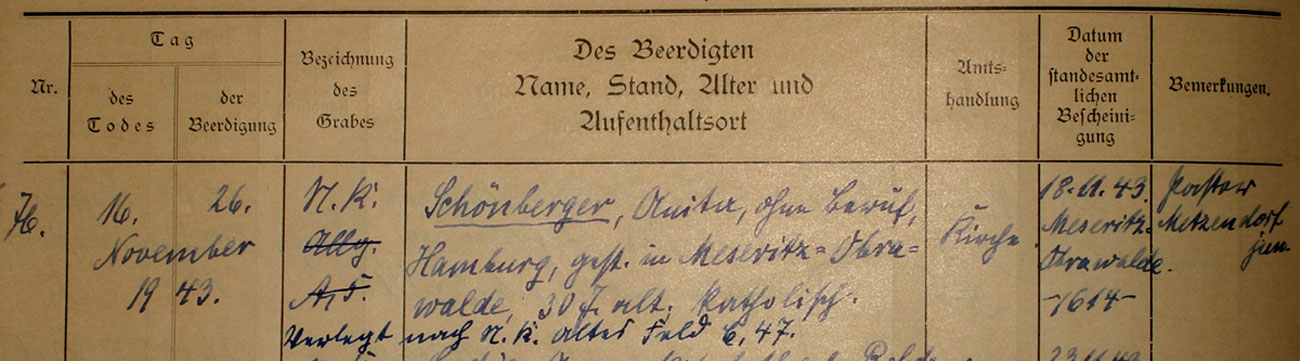 Nr.
Tag
des Todes
der Beerdigung
Bezeichnung
des
Grabes
Des Beerdigten
Name, Stand, Alter und
Aufenthaltsort
Amts-
handlung
Datum
der
standesamt-
lichen
Bescheini-
gung
Bemerkungen.
16.
26.
November
19 43.
N. K.
Allg.
A, 5.
Schönberger, Anita, ohne Beruf,
Hamburg, gest. in Meseritz-Obra-
walde, 30 J. alt. katholisch.
Verlegt nach N. K. altes Feld C, 47.
Kirche
18.11.43.
Meseritz-
Obrawalde.
-1614-
Pastor
Metzendorf
jun.